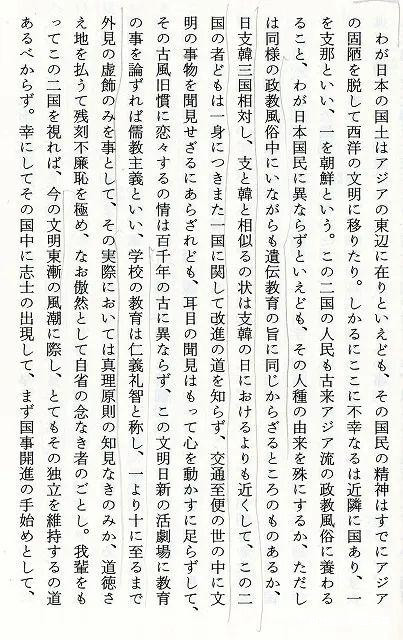 わが日本の国土はアジアの東辺に在りといえども、その国民の精神はすでにアジア
の固陋を脱して西洋の文明に移りたり。しかるにここに不幸なるは近隣に国あり、一
を支那といい、一を朝鮮という。この二国の人民も古来アジア流の政教風俗に養わる
ること、わが日本国民に異ならずといえども、その人種の由来を殊にするか、ただし
は同様の政教風俗中にいながらも遺伝教育の旨に同じからざるところのものあるか、
日支韓三国相対し、支と韓と相似るの状は支韓の日におけるよりも近くして、この二
国の者どもは一身につきまた一国に関して改進の道を知らず、交通至便の世の中に文
明の事物を聞見せざるにあらざれども、耳目の聞見はもって心を動かすに足らずして、
その古風旧慣に恋々するの情は百千年の古に異ならず、この文明日新の活劇場に教育
の事を論ずれば儒教主義といい、学校の教育は仁義礼智と称し、一より十に至るまで
外見の虚飾のみを事として、その実際においては真理原則の知見なきのみか、道徳さ
え地を払うて残刻不廉恥を極め、なお傲然として自省の念なき者のごとし。我輩をも
ってこの二国を視れば、今の文明東漸の風潮に際し、とてもその独立を維持するの道
あるべからず。幸にしてその国中に志士の出現して、まず国事開進の手始めとして、